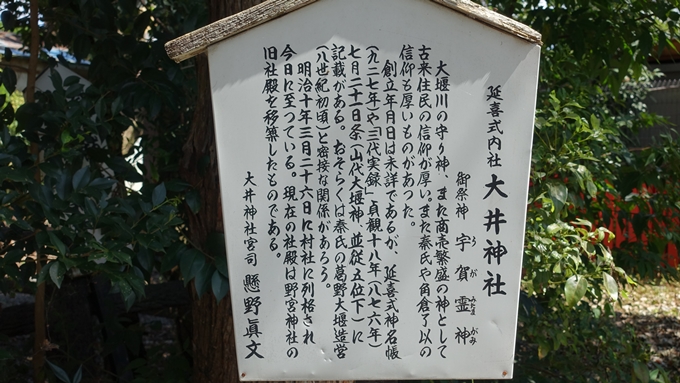 延喜式内社 大井神社
御祭神 宇賀霊神
うが みたまがみ
大堰川の守り神、また商売繁盛の神として
古来住民の信仰が厚い。また秦氏や角倉了以の
信仰も厚いものがあった。
創立年月日は未詳であるが、延喜式神名帳
(九二七年)や三代実録、貞観十八年(八七六年)
七月二十一日条(山代大堰神、並従五位下)に
記載がある。おそらくは秦氏の葛野大堰造営
(八世紀初頃)と密接な関係があろう。
明治十年三月二十六日に村社に列格され
今日に至つている。現在の社殿は野宮神社の
旧社殿を移築したものである。
大井神社宮司 懸野眞文